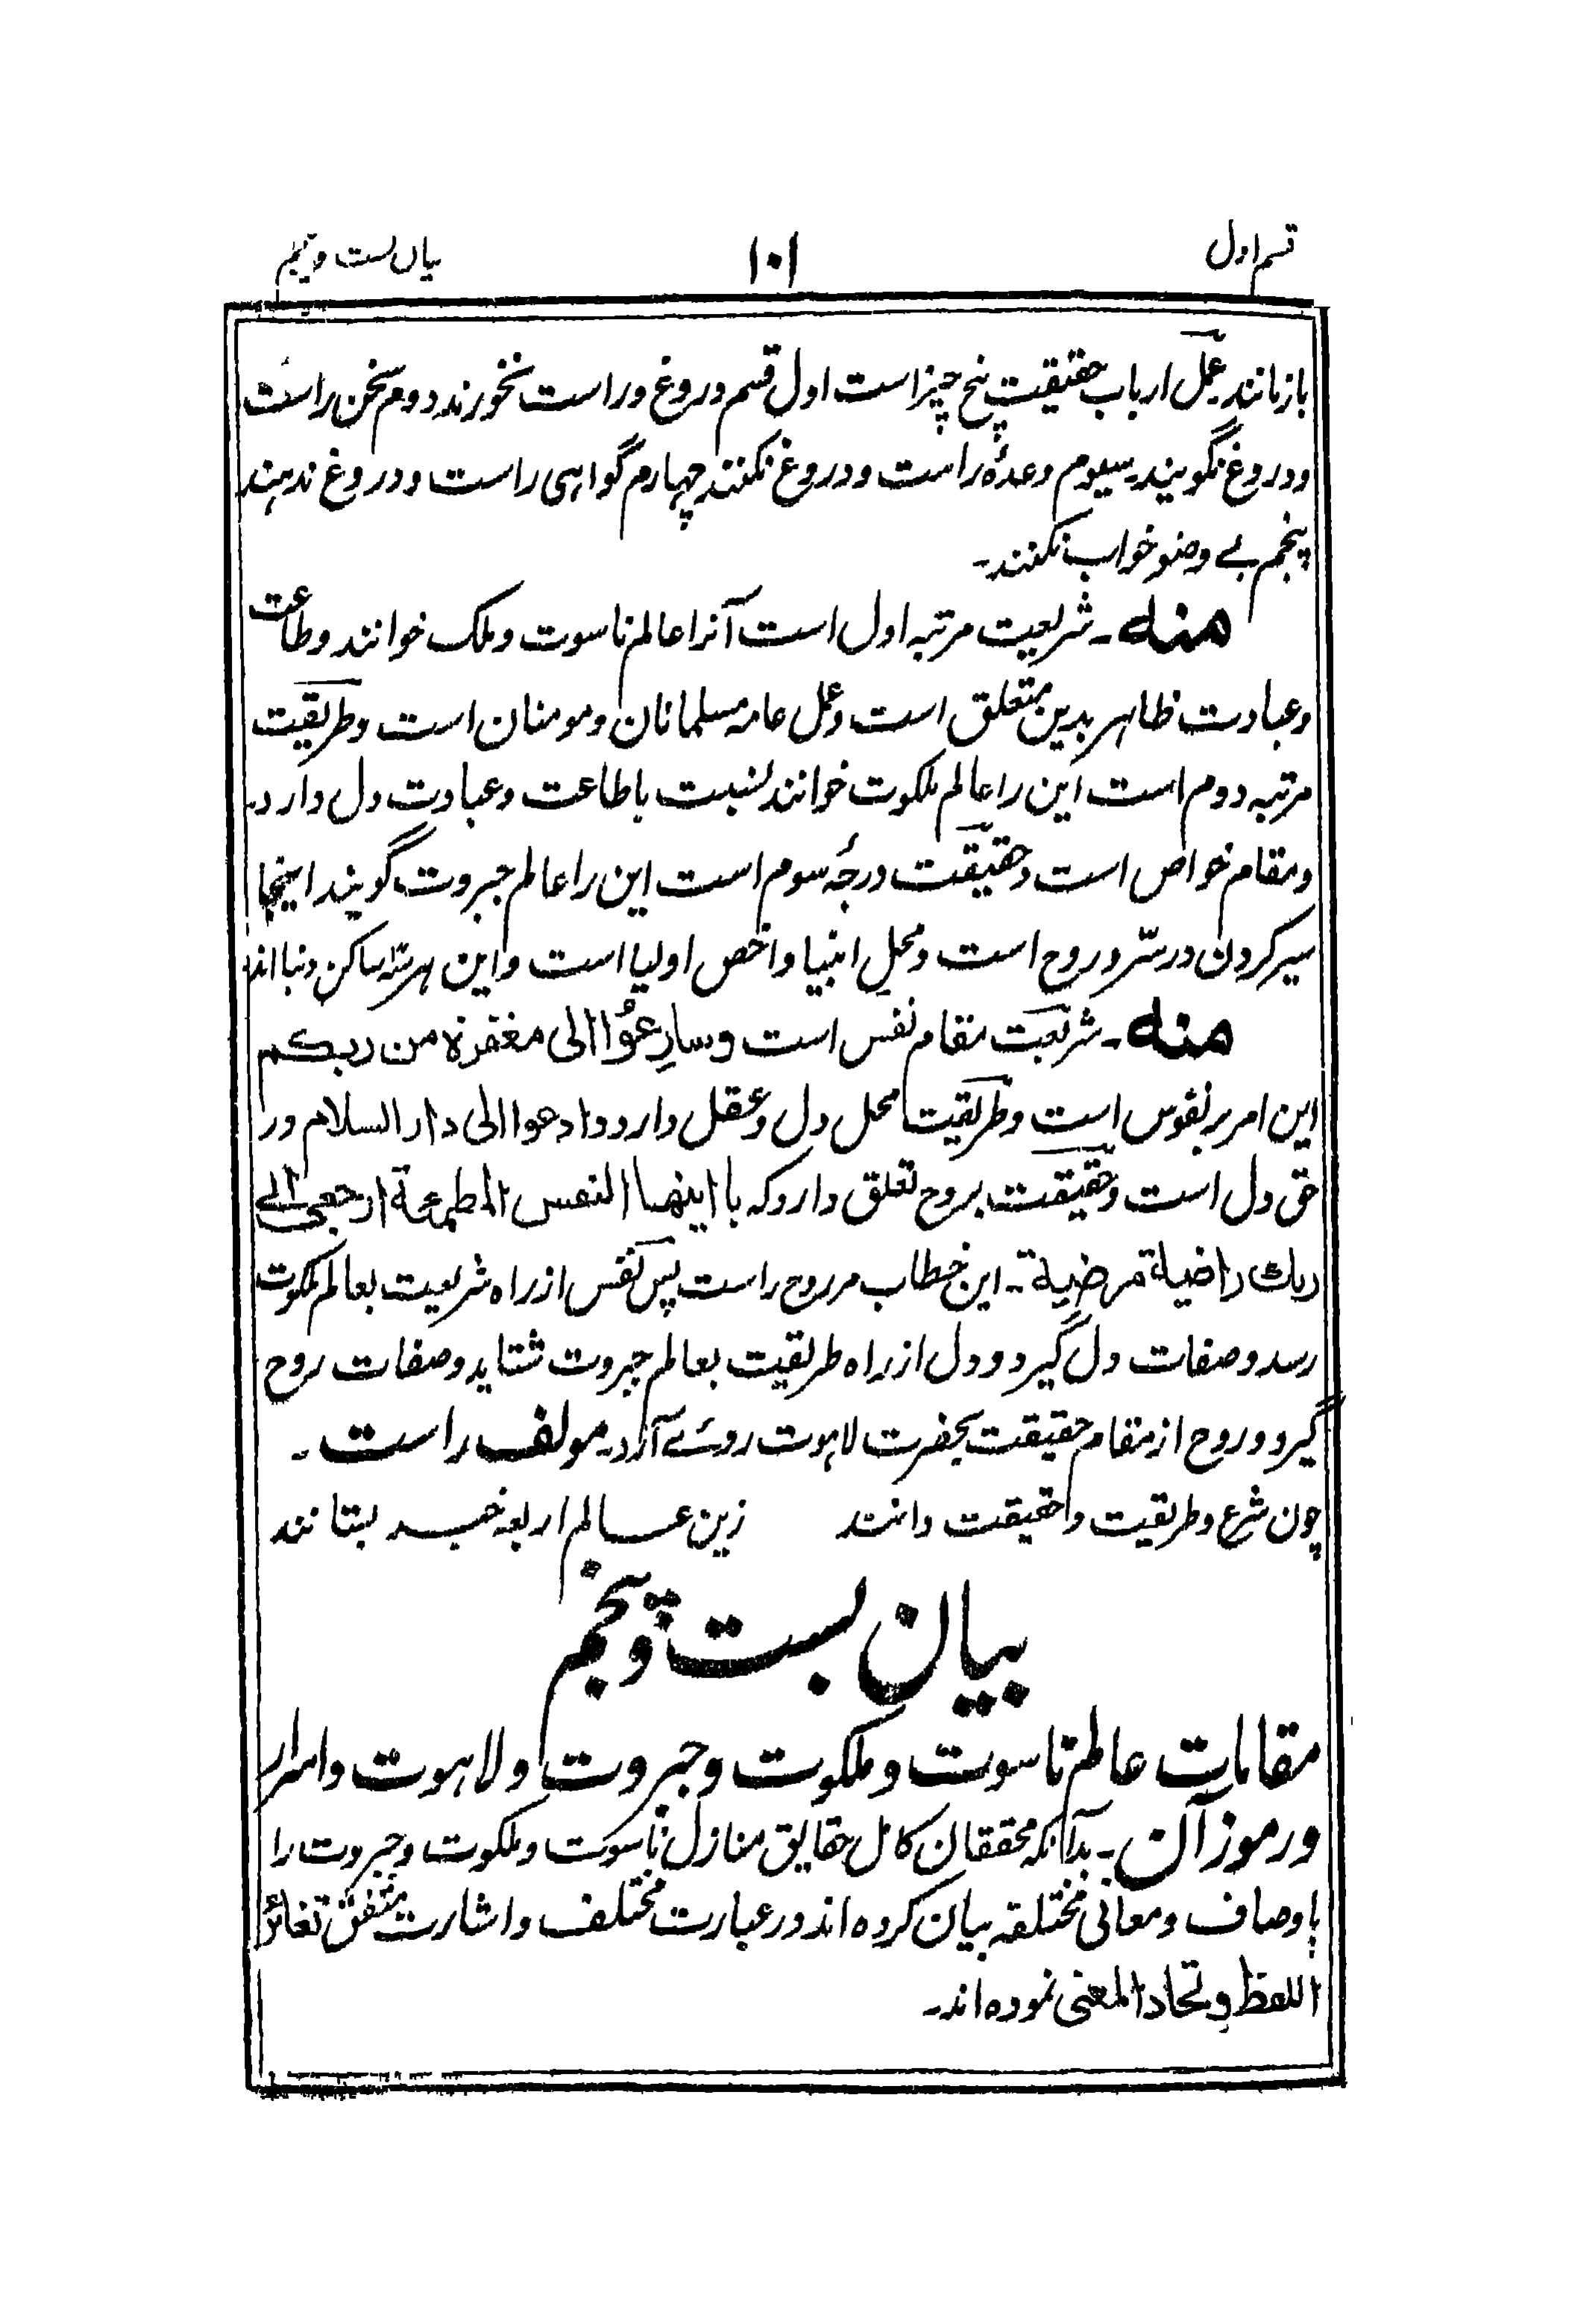 قسم اول
۱۰۱
بیان بست و پنجم
بازمانند عمل ارباب حقیقت پنج چیز است اول قسم دروغ و راست نخورند دوم سخن راست
و دروغ نگویند۔ سیوم وعدۂ راست و دروغ نکنند چهارم گواهی راست و دروغ ندهند
پنجم بے وضو خواب نکنند۔
منه۔ شریعت مرتبه اول است آنرا عالم ناسوت و ملک خوانند و طاعت
و عبادت ظاهر بدین متعلق است و عمل عامه مسلمانان و مومنان است و طریقیت
مرتبه دوم است این را عالم ملکوت خوانند نسبت با طاعت و عبادت دل دارد۔
و مقام خواص است و حقیقت درجۂ سوم است این را عالم جبروت گویند اینجا
سیر کردن در سّر و روح است و محل انبیا و اخص اولیا است و این هر سّه ساکن دنیا اند
منه۔ شریعت مقام نفس است وسارِعوُا الی مغفرة من ربکم
این امر بر نفوس است و طریقیت محل دل و عقل دارد وادعوا الی دار السلام در
حق دل است و حقیقت بروح تعلق دارد که یا ایتها النفس المطمئنة ارجعی الے
ربك راضیة مرضیة۔ این خطاب مر روح راست پس نفس از راه شریعت بعالم ملکوت
رسد و صفات دل گیرد و دل از راه طریقیت بعالم جبروت شتابد و صفات روح
گیرد و روح از مقام حقیقت بحضرت لاهوت روئے آرد۔ مولف راست۔
چون شرع و طریقیت و حقیقت دانند زین عالم اربعه خبر بستانند
بیان بست و پنجم
مقامات عالم ناسوت و ملکوت و جبروت و لاهوت و اسرار
و رموز آن۔ بدآنکه محققان کامل حقایق منازل ناسوت و ملکوت و جبروت را
باوصاف و معانی مختلفه بیان کرده اند و در عبارت مختلف و اشارت متفق تغائر
اللفظ و تحاد المعنی نموده اند۔